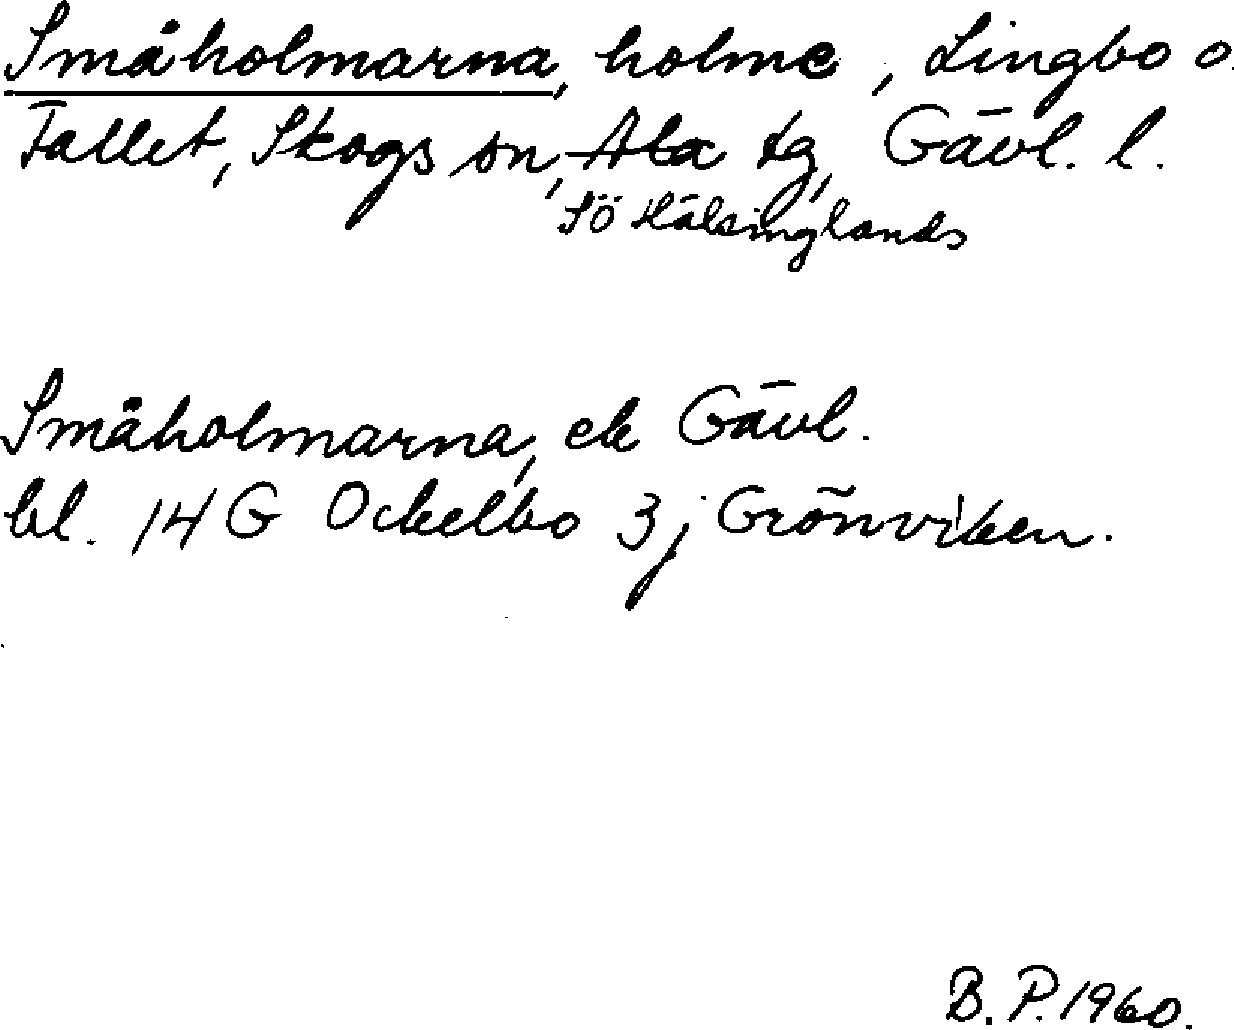 Småholmarna, holme, Lingbo o.
Fallet, Skogs sn, Ala tg, Gävl. l.
Sö Hälsinglands
Småholmarna, ek Gävl.
bl. 14 G Ockelbo 3j Grönviken.
B. P. 1960.